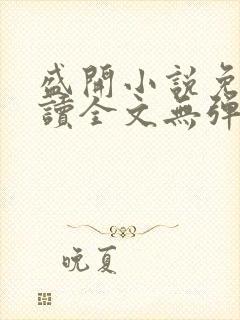 盛開小說免
讀全文無彈
晚夏